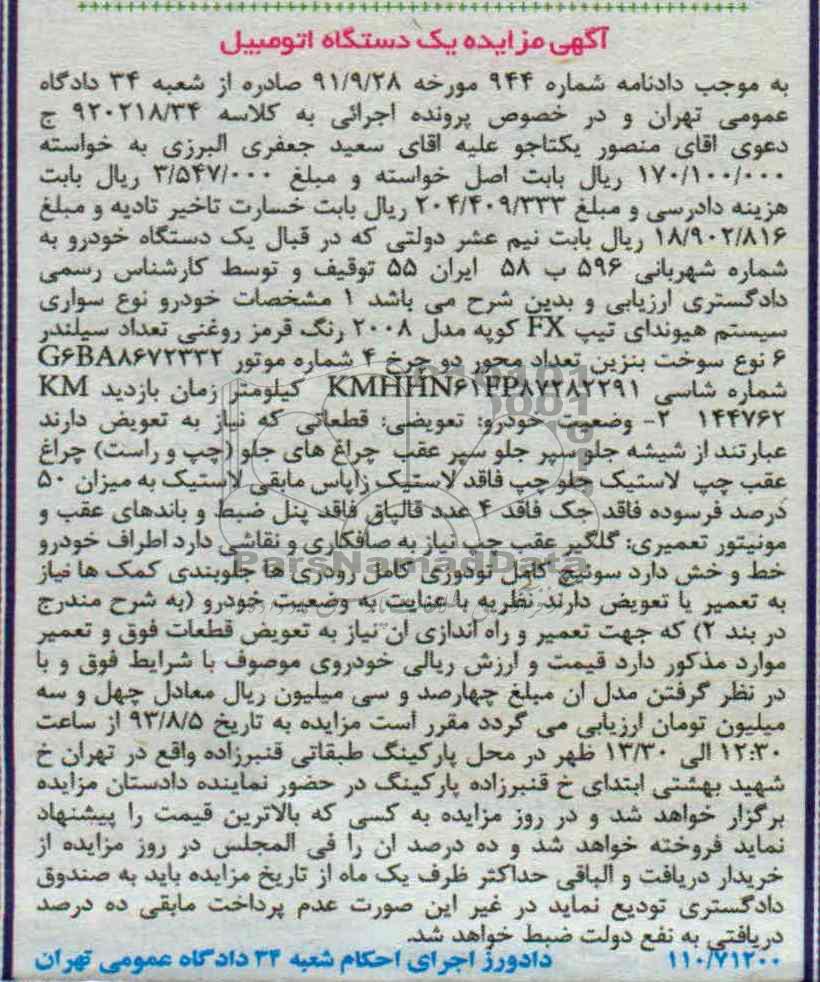 آگهی مزایده یک دستگاه اتومبیل
به موجب دادنامه شماره ۹۴۴ مورخه ۹۱/۹/۲۸ صادره از شعبه ۳۴ دادگاه
عمومی تهران و در خصوص پرونده اجرائی به کلاسه ۹۲۰۲۱۸/۳۴ ج
دعوی اقای منصور یکتاجو علیه اقای سعید جعفری البرزی به خواسته
۱۷۰/۱۰۰/۰۰۰ ریال بابت اصل خواسته و مبلغ ۳/۵۴۷/۰۰۰ ریال بابت
هزینه دادرسی و مبلغ ۲۰۴/۴۰۹/۳۳۳ ریال بابت خسارت تاخیر تادیه و مبلغ
۱۸/۹۰۲/۸۱۶ ریال بابت نیم عشر دولتی که در قبال یک دستگاه خودرو به
شماره شهربانی ۵۹۶ ب ۵۸ ایران ۵۵ توقیف و توسط کارشناس رسمی
دادگستری ارزیابی و بدین شرح می باشد ۱ مشخصات خودرو نوع سواری
سیستم هیوندای تیپ FX کوپه مدل ۲۰۰۸ رنگ قرمز روغنی تعداد سیلندر
۶ نوع سوخت بنزین تعداد محور دو چرخ ۴ شماره موتور G۶BA۸۶۷۲۳۳۲
شماره شاسی KMHHN۶۱FP۸۷۲۸۲۲۹۱ کیلومتر زمان بازدید KM
۱۴۴۷۶۲ ۲- وضعیت خودرو: تعویضی: قطعاتی که نیاز به تعویض دارند
عبارتند از شیشه جلو سپر جلو سپر عقب چراغ های جلو (چپ و راست) چراغ
عقب چپ لاستیک جلو چپ فاقد لاستیک زاپاس مابقی لاستیک به میزان ۵۰
درصد فرسوده فاقد جک فاقد ۴ عدد قالپاق فاقد پنل ضبط و باندهای عقب و
مونیتور تعمیری: گلگیر عقب چپ نیاز به صافکاری و نقاشی دارد اطراف خودرو
خط و خش دارد سوئیچ کامل تودوزی کامل رودری ها جلوبندی کمک ها نیاز
به تعمیر یا تعویض دارند نظریه با عنایت به وضعیت خودرو (به شرح مندرج
در بند ۲) که جهت تعمیر و راه اندازی ان نیاز به تعویض قطعات فوق و تعمیر
موارد مذکور دارد قیمت و ارزش ریالی خودروی موصوف با شرایط فوق و با
در نظر گرفتن مدل ان مبلغ چهارصد و سی میلیون ریال معادل چهل و سه
میلیون تومان ارزیابی می گردد مقرر است مزایده به تاریخ ۹۳/۸/۵ از ساعت
۱۲:۳۰ الی ۱۳/۳۰ ظهر در محل پارکینگ طبقاتی قنبرزاده واقع در تهران خ
شهید بهشتی ابتدای خ قنبرزاده پارکینگ در حضور نماینده دادستان مزایده
برگزار خواهد شد و در روز مزایده به کسی که بالاترین قیمت را پیشنهاد
نماید فروخته خواهد شد و ده درصد ان را فی المجلس در روز مزایده از
خریدار دریافت و الباقی حداکثر ظرف یک ماه از تاریخ مزایده باید به صندوق
دادگستری تودیع نماید در غیر این صورت عدم پرداخت مابقی ده درصد
دریافتی به نفع دولت ضبط خواهد شد.
۱۱۰/۷۱۲۰۰ دادورز اجرای احکام شعبه ۳۴ دادگاه عمومی تهران
ParsNamadData